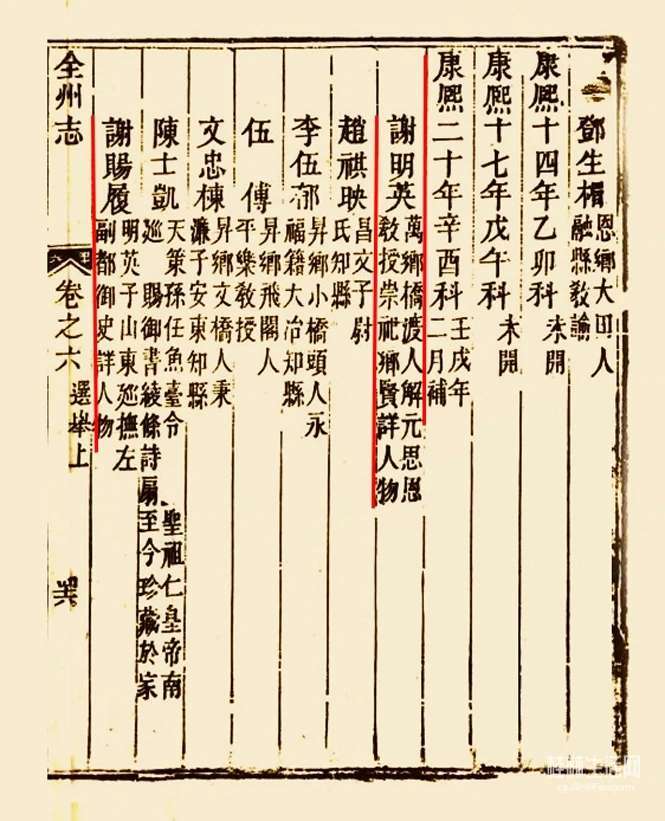 鄧生楫恩鄉大田人
融縣教諭
康熙十四年乙卯科未開
康熙十七年戊午科未開
康熙二十年辛酉科壬戌年
二月補
謝明英萬鄉橋渡人解元思恩
教授崇祀鄉賢詳人物
趙祺映昌文子尉
氏知縣
李伍郁昇鄉小橋頭人永
福籍大冶知縣
伍傳昇鄉飛閣人
平樂教授
文忠棟昇鄉文橋人秉
濂子安東知縣
陳士凱天策孫任魚臺令
聖祖仁皇帝南
巡 賜御書綾條詩扇至今珍藏於家
謝賜履明英子山東巡撫左
副都御史詳人物
全州志
卷之六
選舉上